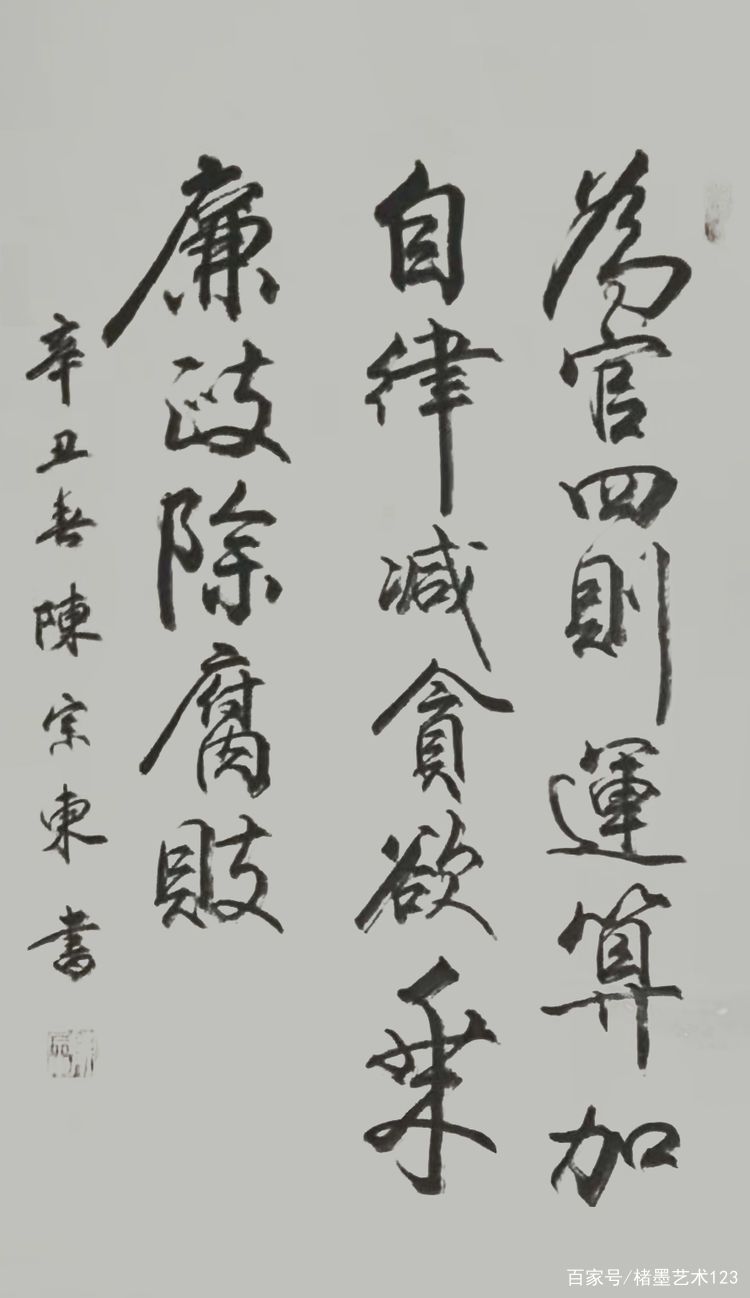 為官四則運算加
自律減貪欲乗
廉政除腐敗
辛丑春陳宗東書
百家号/楮墨艺术123